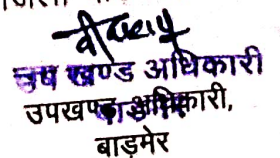 उप खण्ड अधिकारी
उपखण्ड अधिकारी,
बाड़मेर